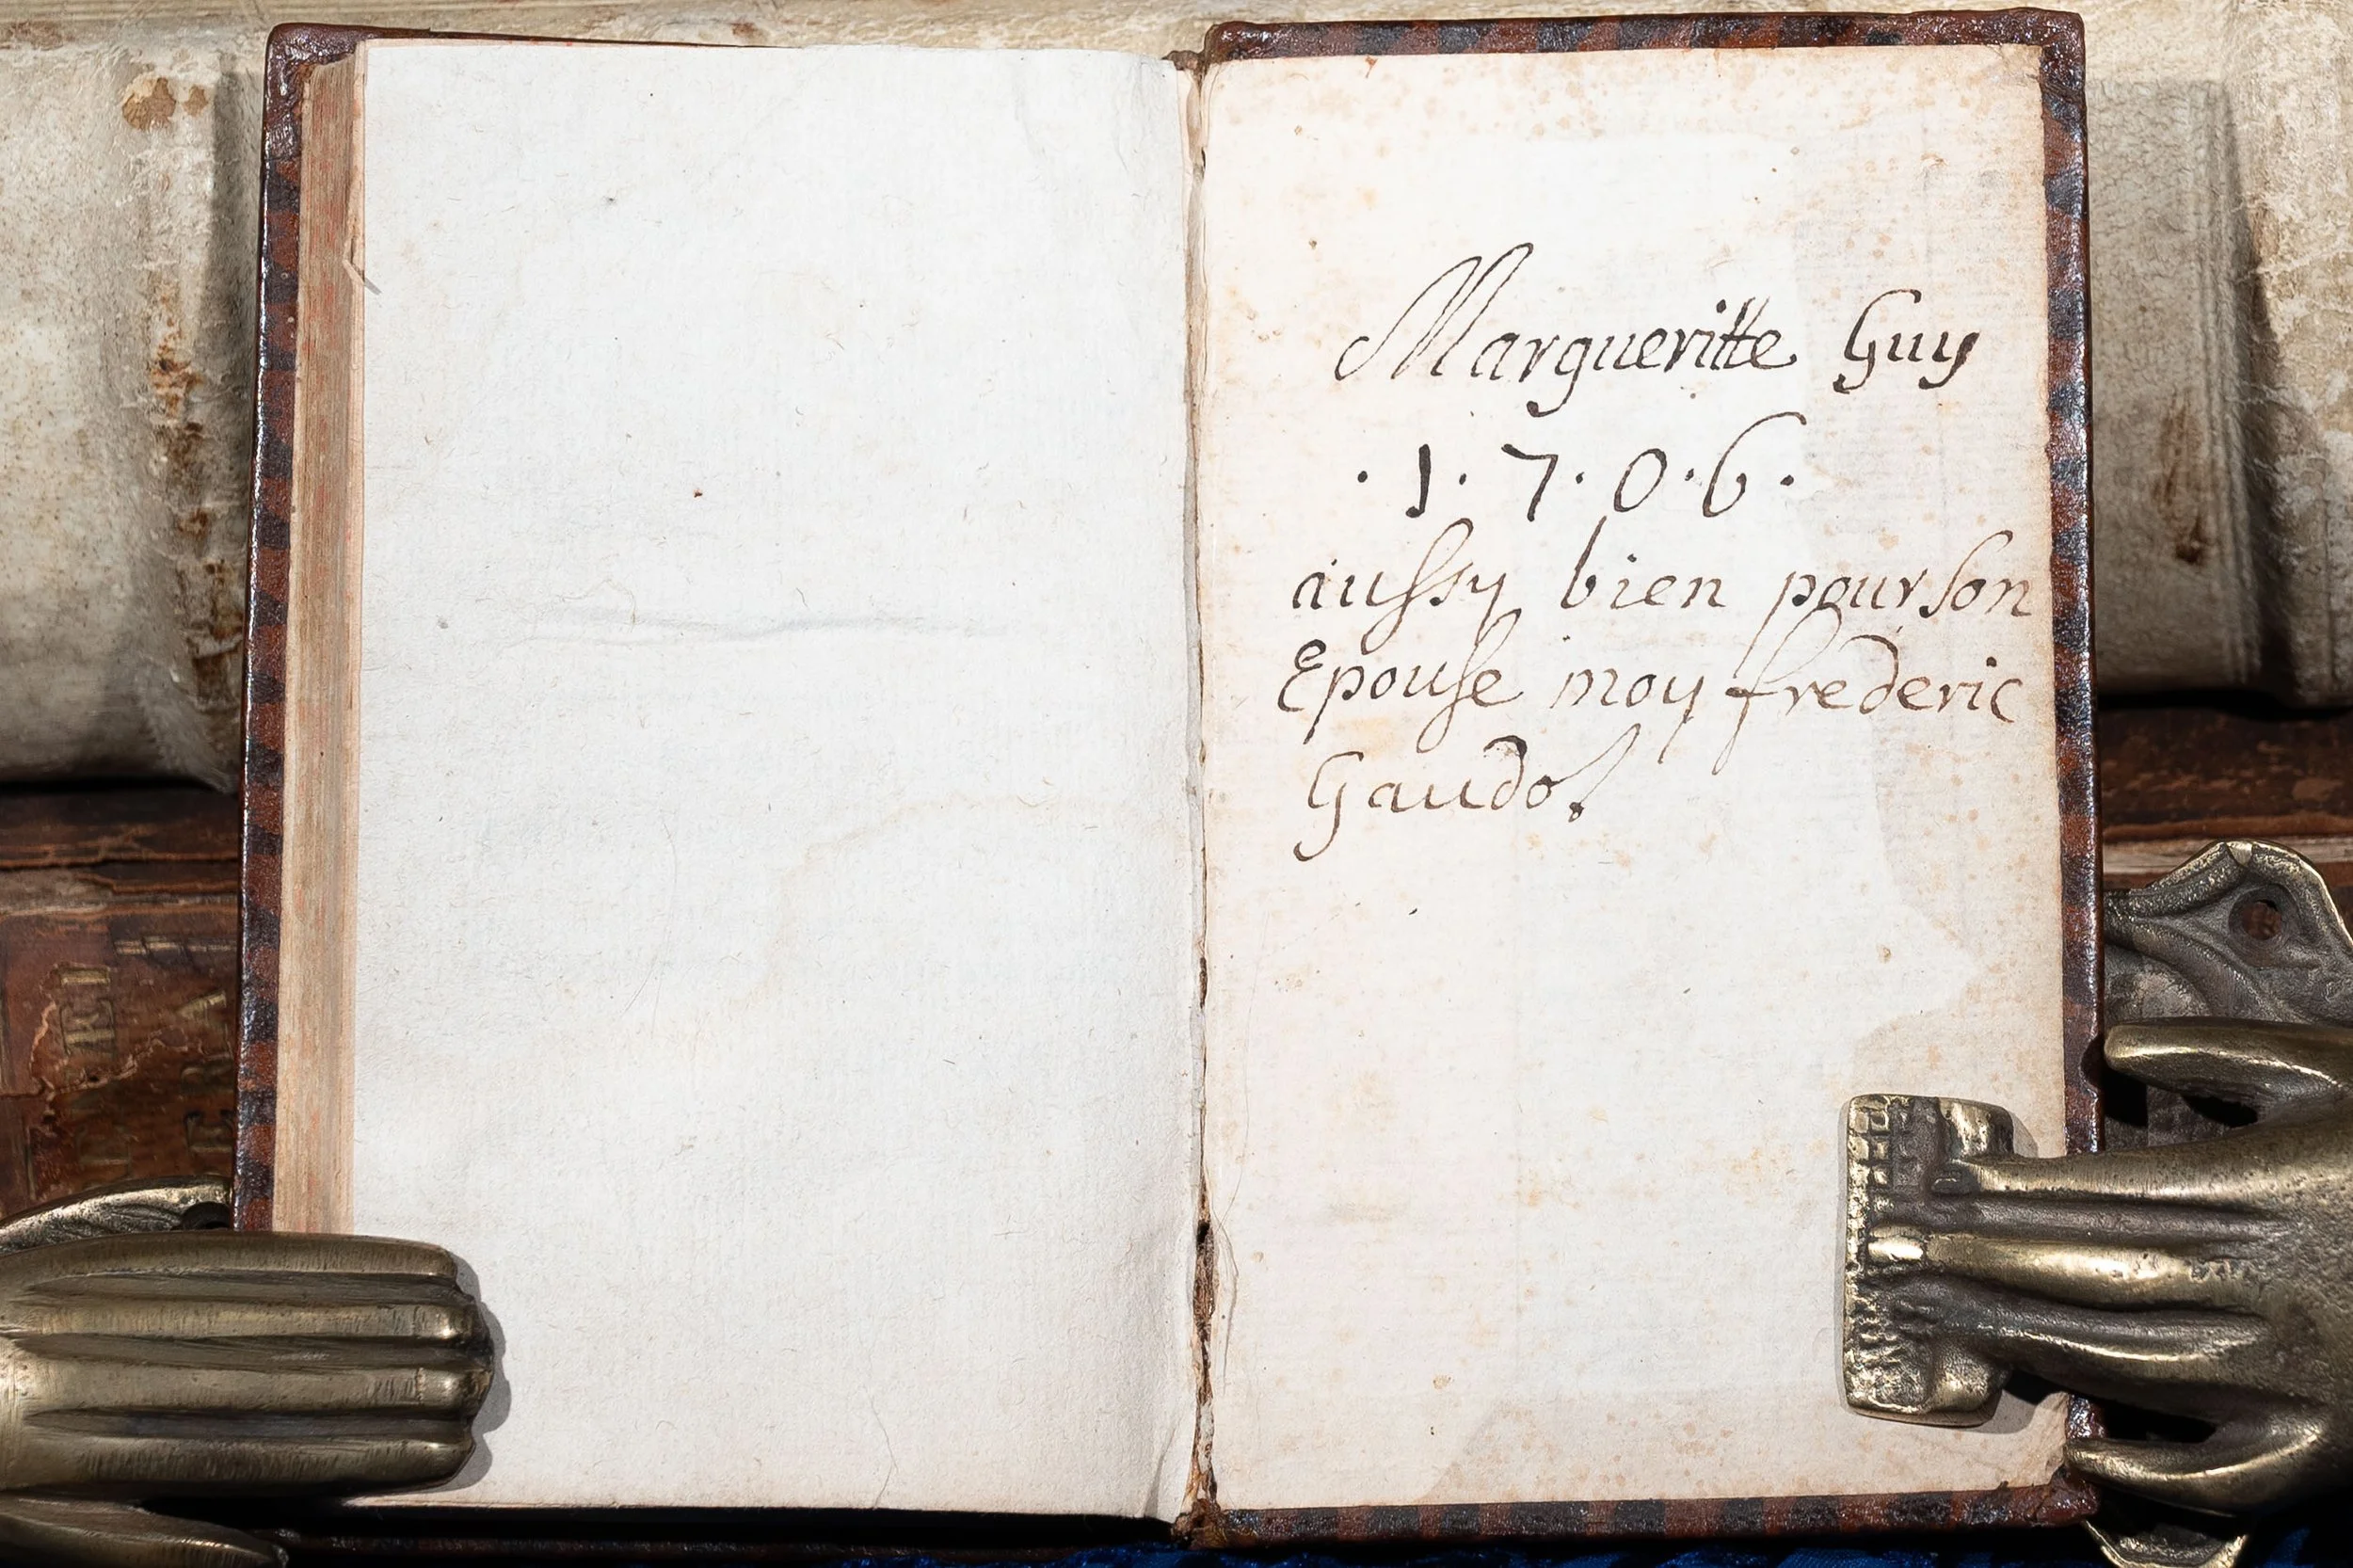 Margueritte Guy
·1·7·0·6·
aussy bien pour son
Epouse moy frederic
Gaudo!